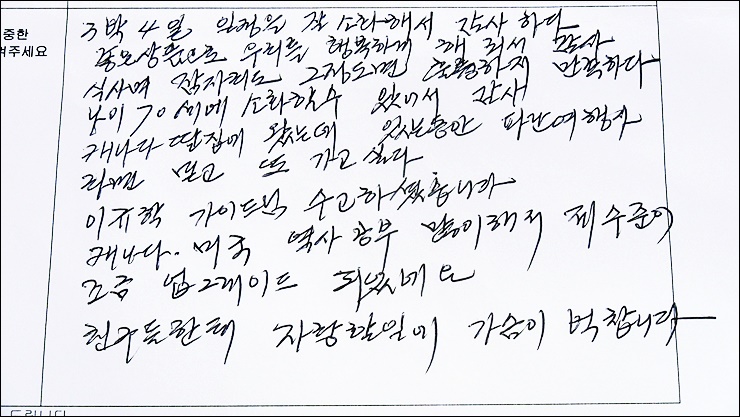 중한
겨주세요
3박4일 일정을 잘 소화해서 감사 하다
좋은상품으로 우리를 행복하게 해 줘서 감사
식사며 잠자리도 그정도면 훌륭하지 만족하다
나이 70세에 소화할수 있어서 감사
캐나다 딸집에 왔는데 있는동안 파란여행사
라면 믿고 또 가고 싶다
이규학 가이드님 수고하셨습니다
캐나다. 미국 역사공부 많이해서 제수준이
조금 업그레이드 되었네요
친구들한테 자랑할일에 가슴이 벅찹니다
드립니다